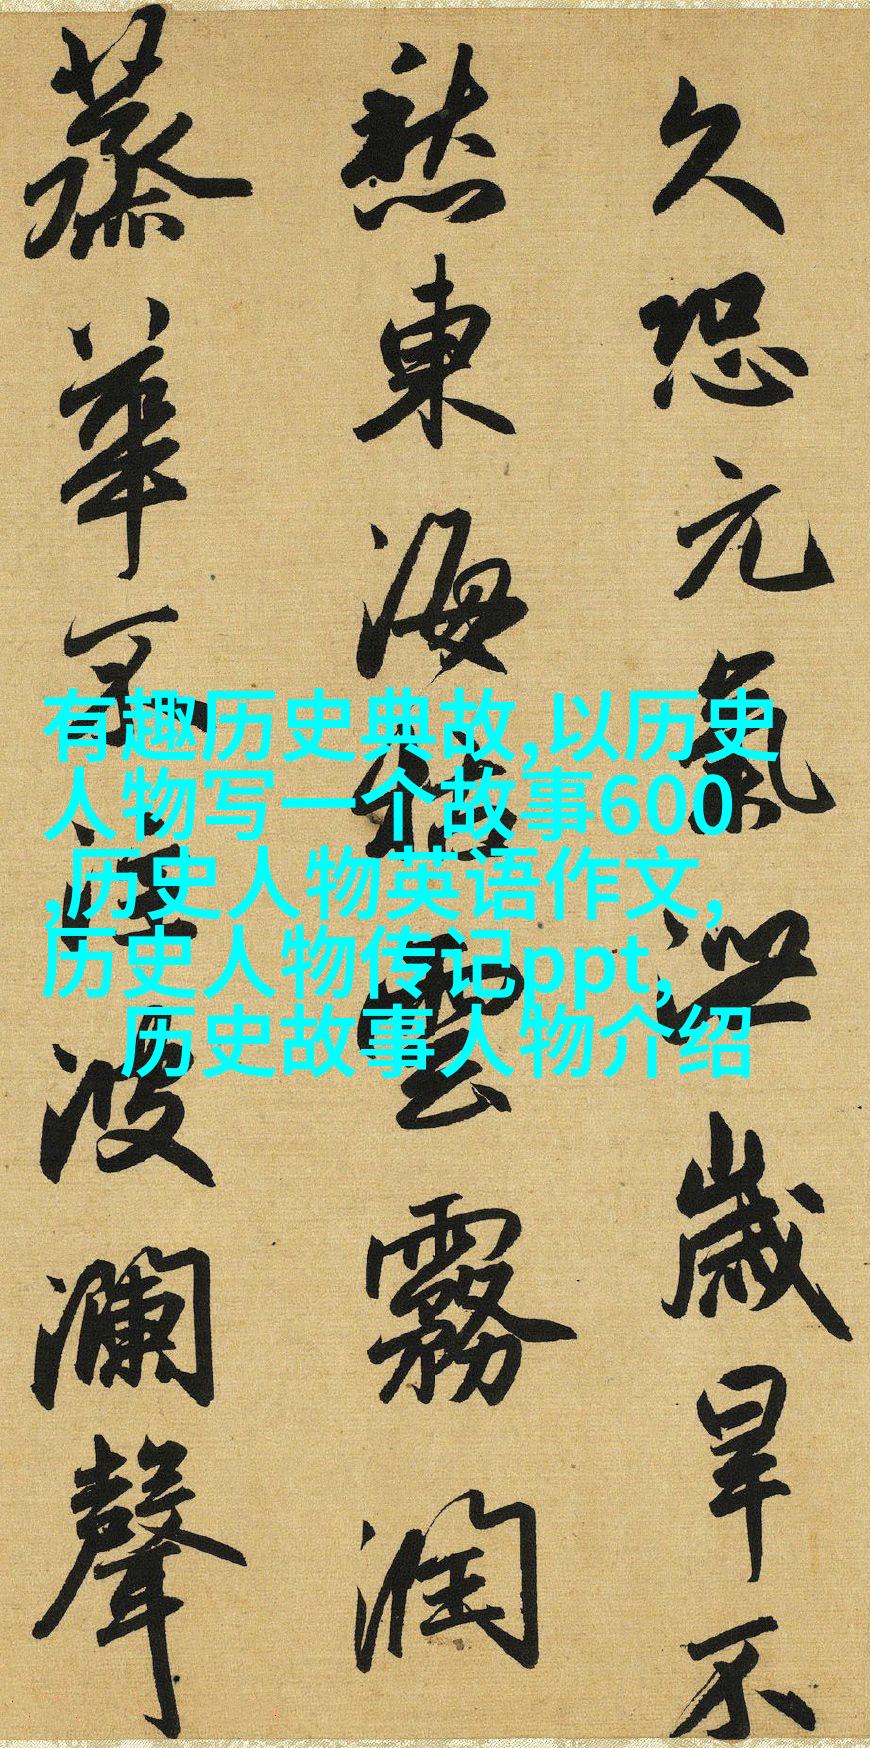 久恐元氣泄歲旱不
愁東海枯雲霧潤
蒸華不注波瀾聲
有趣历史典故,以历史
人物写一个故事600
,历史人物英语作文,
历史人物传记ppt,
历史故事人物介绍